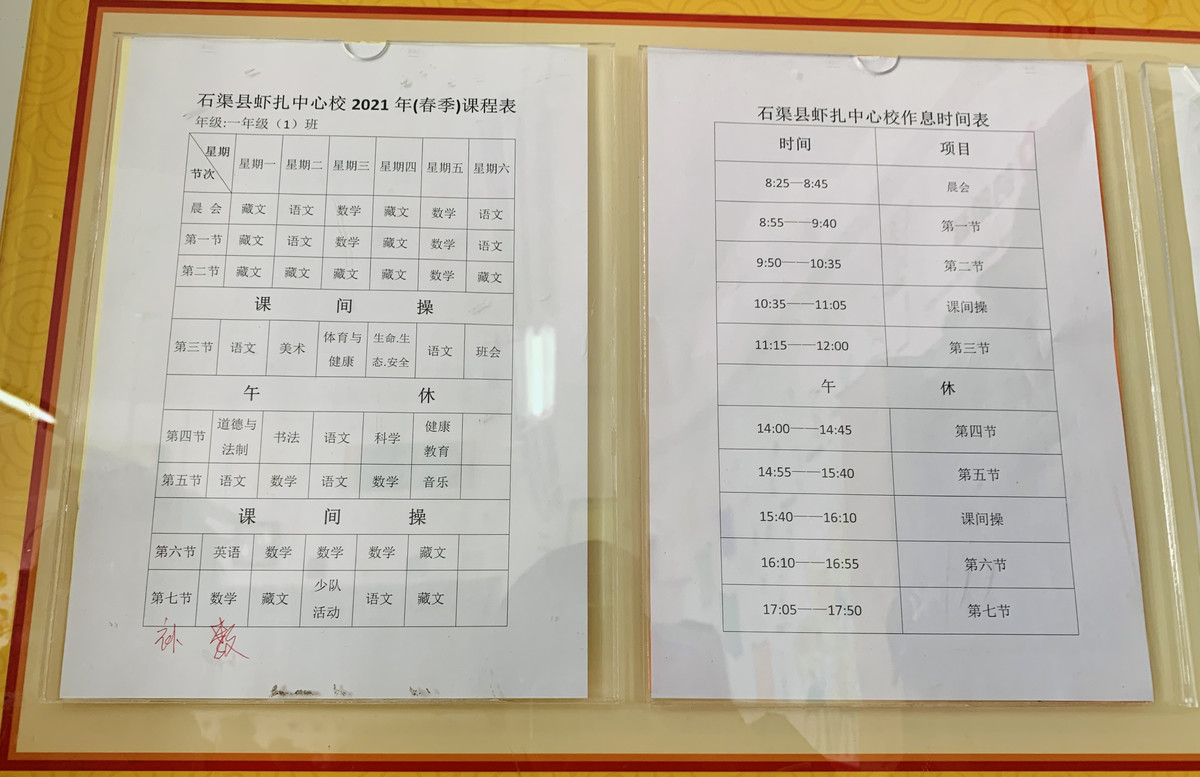 石渠县虾扎中心校 2021 年(春季)课程表
年级:一年级（1）班
星期 节次 星期一 星期二 星期三 星期四 星期五 星期六
晨 会 藏文 语文 数学 藏文 数学 语文
第一节 藏文 语文 数学 藏文 数学 语文
第二节 藏文 藏文 藏文 藏文 数学 藏文
课 间 操
第三节 语文 美术 体育与健康 生命.生态.安全 语文 班会
午 休
第四节 道德与法制 书法 语文 科学 健康教育
第五节 语文 数学 语文 数学 音乐
课 间 操
第六节 英语 数学 数学 数学 藏文
第七节 数学 藏文 少队活动 语文 藏文
补 数
石渠县虾扎中心校作息时间表
时间 项目
8:25—8:45 晨会
8:55——9:40 第一节
9:50——10:35 第二节
10:35——11:05 课间操
11:15——12:00 第三节
午 休
14:00——14:45 第四节
14:55——15:40 第五节
15:40——16:10 课间操
16:10——16:55 第六节
17:05——17:50 第七节